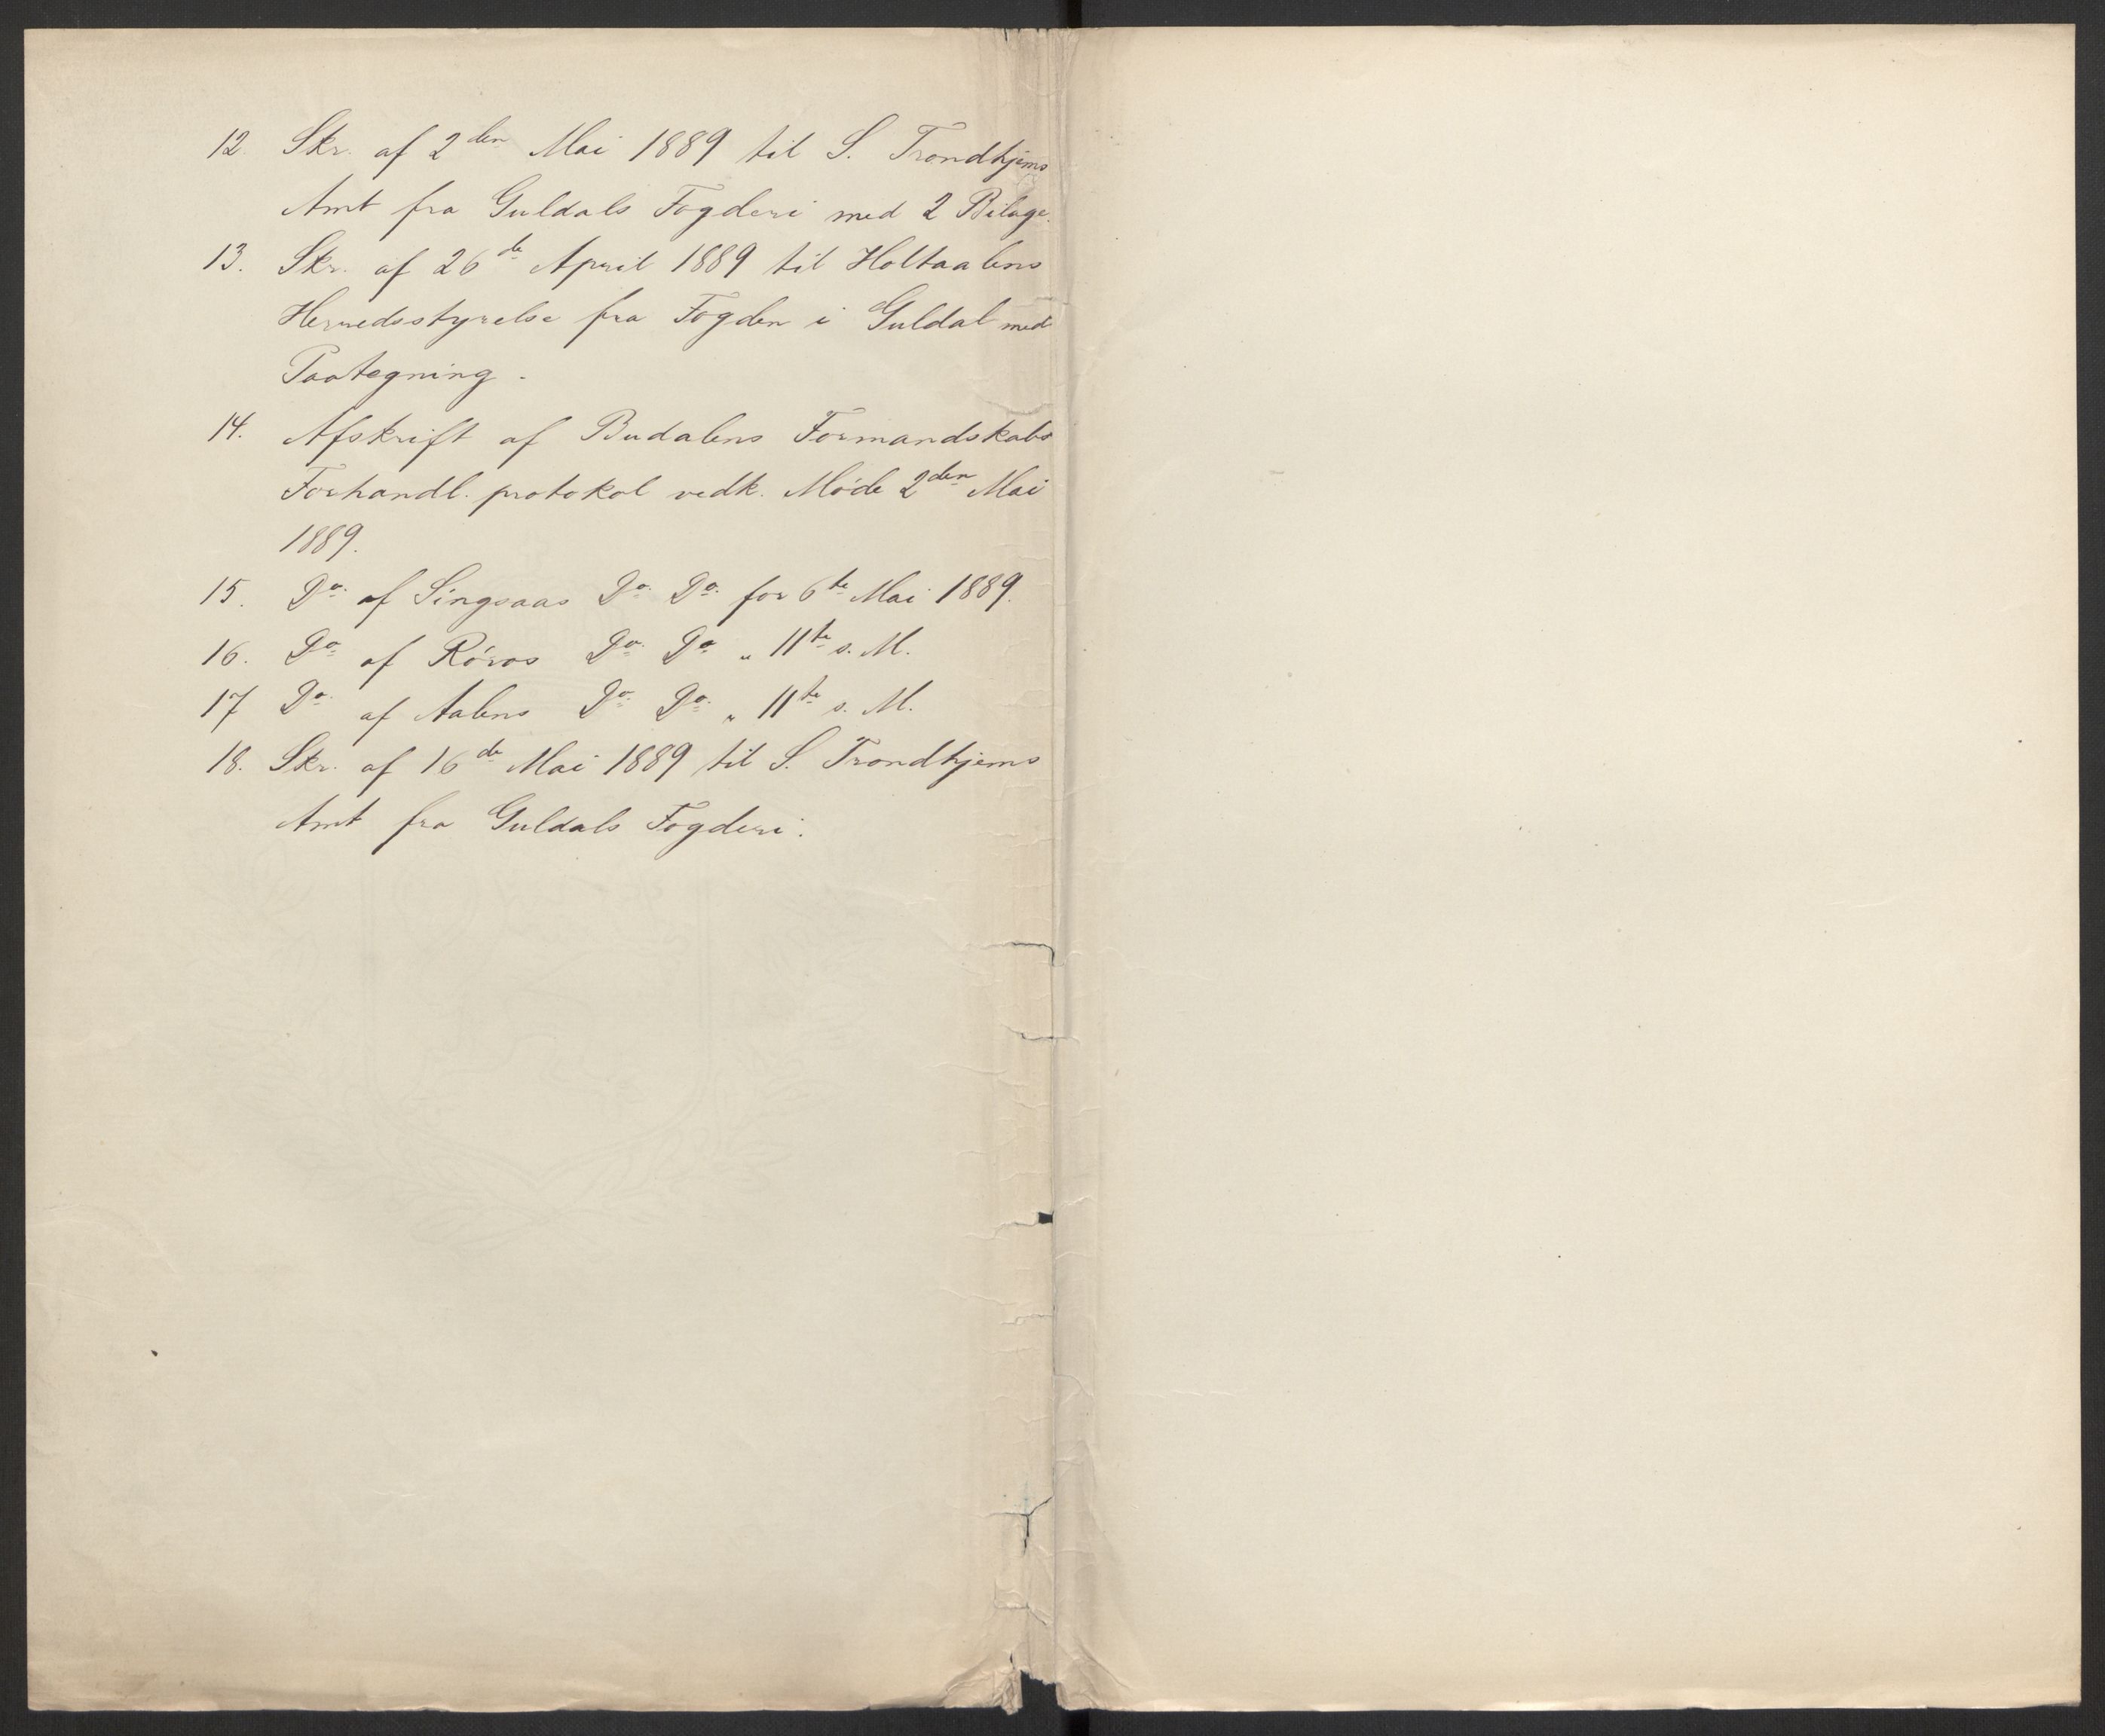 12. Skr. af 2den Mai 1889 til S. Trondhjems
Amt fra Guldals Fogderi med 2 Bilage.
13. Skr. af 26de April 1889 til Holtaalens
Herredsstyrelse fra Fogden i Guldal med
Paategning.
14. Afskrift af Budalens Formandskabs
Forhandl. protokol vedk. Møde 2den Mai
1889.
15. Do. af Singsaas Do. Do. for 6te Mai 1889.
16. Do. af Røros Do. Do. " 11te s. M.
17 Do. af Aalens Do. Do. " 11te s. M.
18. Skr. af 16de Mai 1889 til S. Trondhjems
Amt fra Guldals Fogderi.